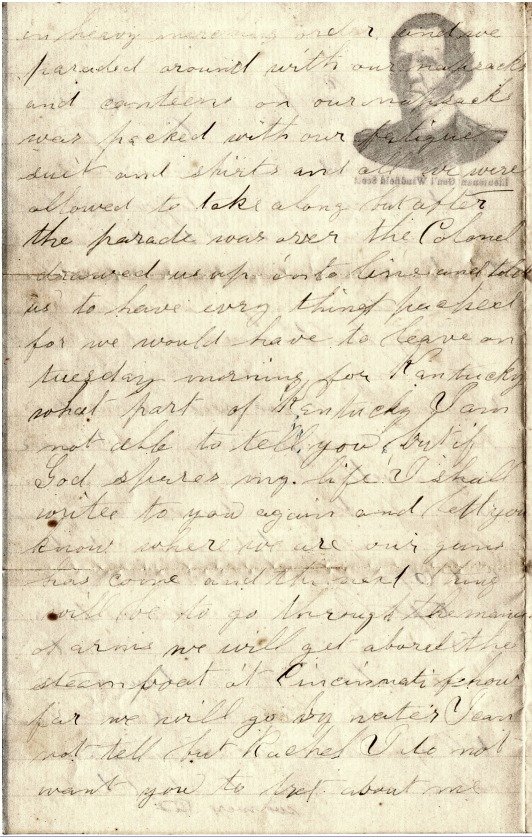 in heavy marching order and we
paraded around with our napsacks
and canteens on our napsack
was packed with our fatigue
suit and shirts and all we were
allowed to take along but after
Lieutenant Gen'l Windfield Scott
the parade was over the Colonel
drawed us up into line and told
us to have evry thing packed
for we would have to leave on
tuesday morning for Kentucky
what part of Kentucky I am
not able to tell you but if
God spares my life I shall
write to you again and tell you
know where we are our guns
has come and the next thing
will be to go through the manu
of arms we will get aboard the
steamboat at Cincinnati how
far we will go by water I can
not tell but Rachel I do not
want you to fret about me